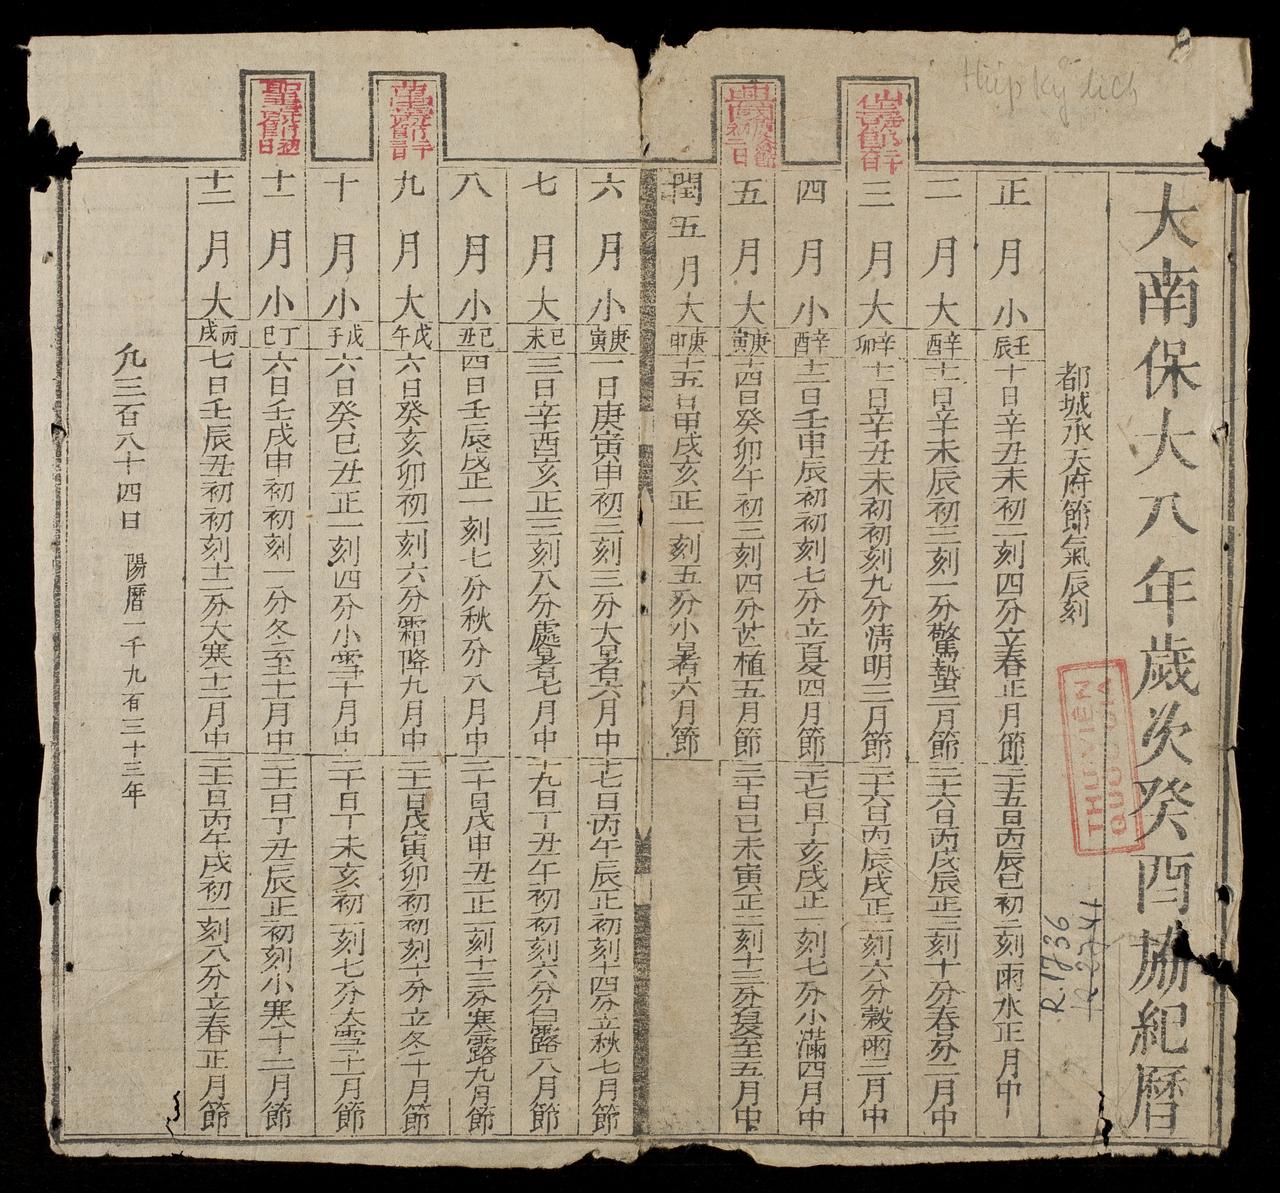 Hiệp kỷ lịch
大南保大八年歲次癸酉協紀曆
THƯ VIỆN
QUỐC GIA
R.1736
都城承天府節氣辰刻
正月小 壬辰 十日辛丑未初二刻四分立春正月節 二十五日丙辰巳初二刻雨水正月中
二月大 辛酉 十一日辛未辰初三刻一分驚蟄二月節 二十六日丙戌辰正三刻十分春分二月中
仙壽節
三月大 辛卯 十一日辛丑未初初刻九分淸明三月節 二十六日丙辰戌正二刻六分穀雨三月中
四月小 辛酉 十二日壬申辰初初刻七分立夏四月節 二十七日丁亥戌正一刻七分小滿四月中
初二日
五月大 庚寅 十四日癸卯午初三刻四分芒植五月節 三十日己未寅正二刻十三分夏至五月中
閏五月大 庚申 十五日甲戌亥正一刻五分小暑六月節
六月小 庚寅 一日庚寅申初三刻三分大暑六月中 十七日丙午辰正初刻十四分立秋七月節
七月大 己未 三日辛酉亥正三刻八分處暑七月中 十九日丁丑午初初刻六分白露八月節
八月小 己丑 四日壬辰戌正一刻七分秋分八月中 二十日戊申丑正二刻十三分寒露九月節
萬壽節
九月大 戊午 六日癸亥卯初一刻六分霜降九月中 二十一日戊寅卯初初刻十分立冬十月節
十月小 戊子 六日癸巳丑正一刻四分小雪十月中 二十日丁未亥初一刻七分大雪十一月節
聖壽節初日
十一月小 丁巳 六日壬戌申初初刻一分冬至十一月中 二十一日丁丑辰正初刻小寒十二月節
十二月大 丙戌 七日壬辰丑初初刻十二分大寒十二月中 二十一日丙午戌初一刻八分立春正月節
凢三百八十四日 陽曆一千九百三十三年